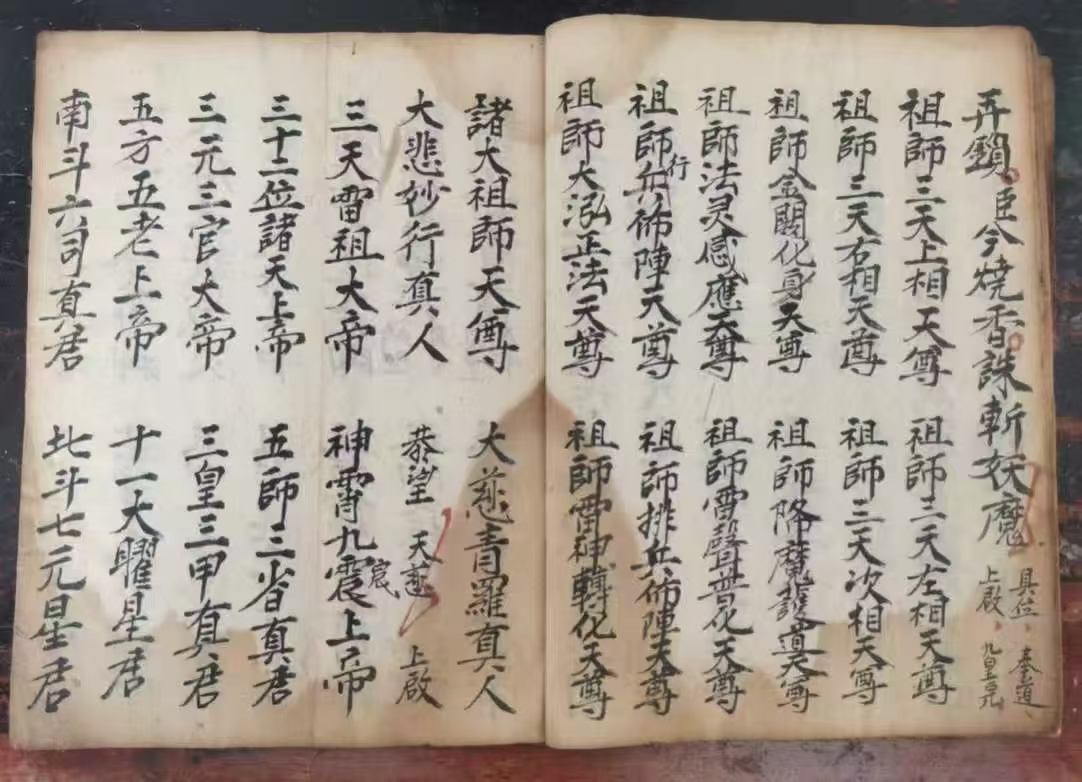 弄鎖臣今燒香誅斬妖魔 具位 奏道 上啟 九皇元
祖師三天上相天尊 祖師三天左相天尊
祖師三天右相天尊 祖師三天次相天尊
祖師金闕化身天尊 祖師降魔護道天尊
祖師法灵感應天尊 祖師雷聲普化天尊
祖師行兵佈陣天尊 祖師排兵佈陣天尊
祖師大泓正法天尊 祖師雷神轉化天尊
諸大祖師天尊 大慈青羅真人
大悲妙行真人 恭望 天慈 上啟
三天雷祖大帝 神霄九震宸上帝
三十二位諸天上帝 五師三省真君
三元三官大帝 三皇三甲真君
五方五老上帝 十一大曜星君
南斗六司真君 北斗七元星君